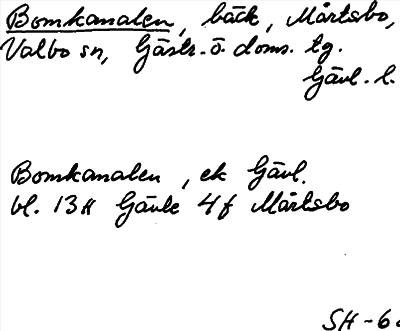 Bomkanalen, bäck, Mårtsbo,
Valbo sn, Gästr. ö. doms. tg.
Gävl. l.
Bomkanalen, ek Gävl.
bl. 13H Gävle 4f Mårtsbo
SH-6